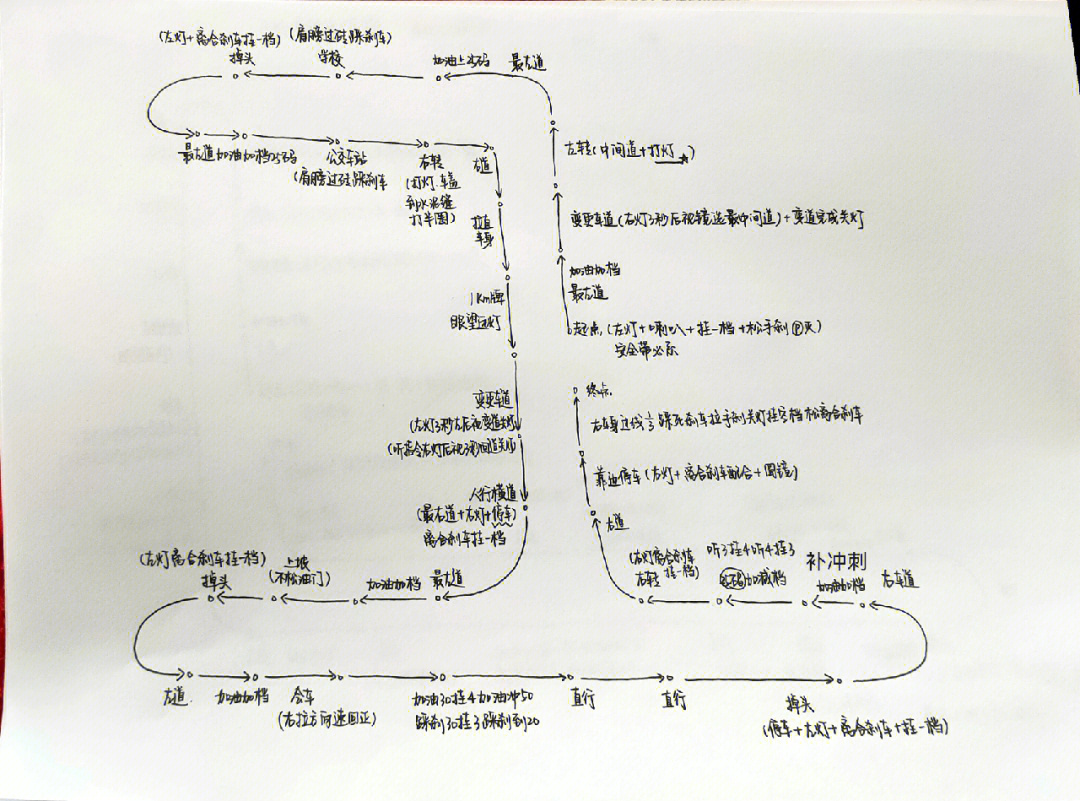 (左灯+离合刹车挂一档)
掉头
(肩膀过硅踩刹车)
学校
加油上25码
最左道
最右道加油加档25码
公交车站
(肩膀过硅踩刹车
右转
(打灯.车盖
到水泥缝
打半圈)
右道
拉直
车身
左转(中间道+打灯)
变更车道(左灯3秒后视镜选最中间道)+变道完成关灯
加油加档
最右道
起点(左灯+喇叭+挂一档+松手刹Ⓟ灭)
安全带必示
1Km牌
眼望远灯
变更车道
(左灯3秒左后视变道关灯
(听指令右灯后视3秒间道关灯)
人行横道
(最右道+右灯+停车)
离合刹车挂一档
终点
右车身过线⅓踩死刹车拉手刹关灯挂空档松离合刹车
靠边停车(右灯+离合刹车配合+圆镜)
右道
(左灯离合刹车挂一档)
掉头
上坡
(不松油门)
加油加档
最右道
(右灯离合刹车
右转 挂一档)
听3挂4听4挂3
加减档
补冲刺
加油加档
右车道
左道
加油加档
会车
(右拉方向速回正)
加油30挂4加油冲50
踩刹30挂3踩刹到20
直行
直行
掉头
(停车+左灯+离合刹车+挂一档)